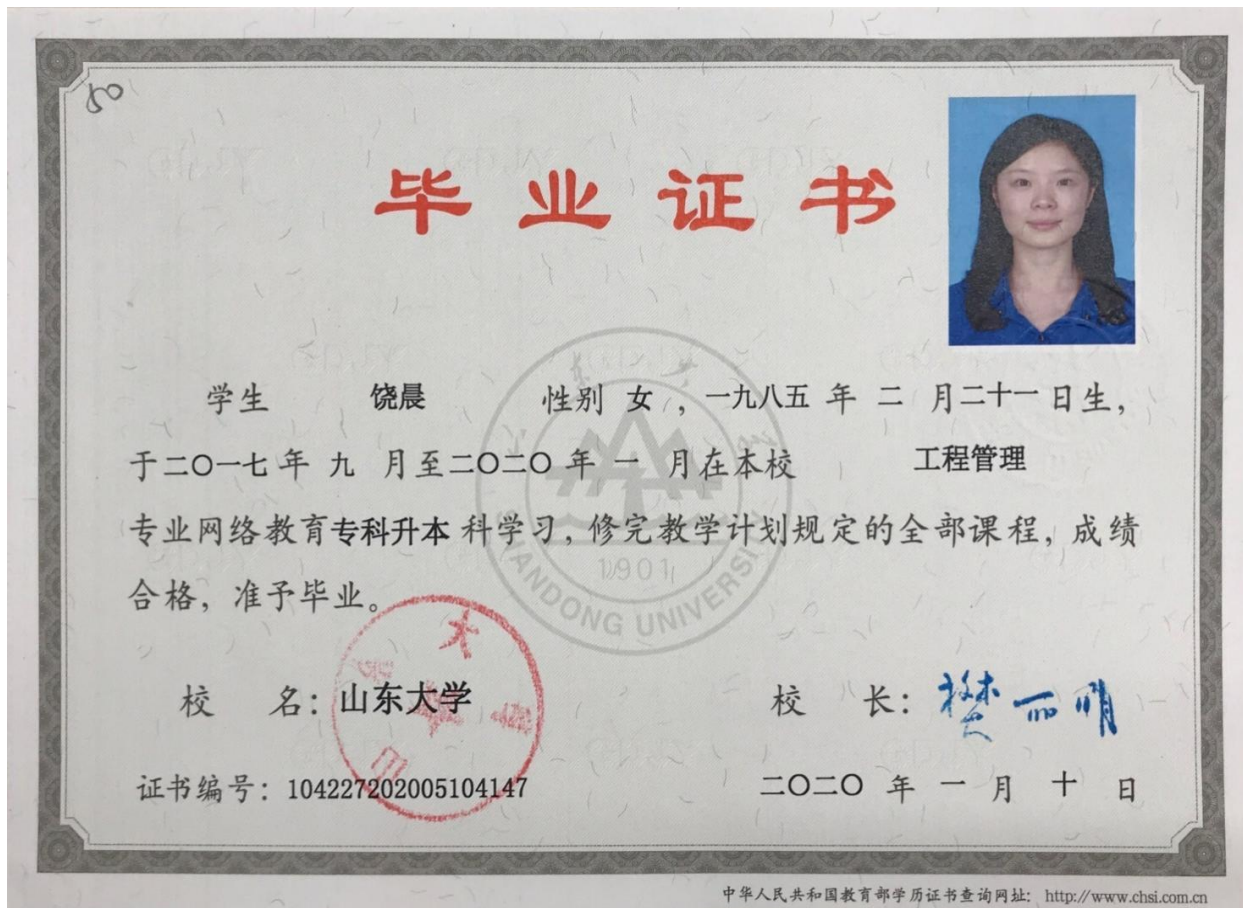 50
毕业证书
学生 饶晨 性别 女，一九八五 年 二 月二十一 日生，
于二〇一七年 九 月至二〇二〇 年 一 月在本校 工程管理
专业网络教育专科升本 科学习，修完教学计划规定的全部课程，成绩
合格，准予毕业。
1901
SHANDONG UNIVERSITY
校 名：山东大学
校 长：樊丽明
证书编号：104227202005104147
二〇二〇 年 一 月 十 日
中华人民共和国教育部学历证书查询网址：http://www.chsi.com.cn